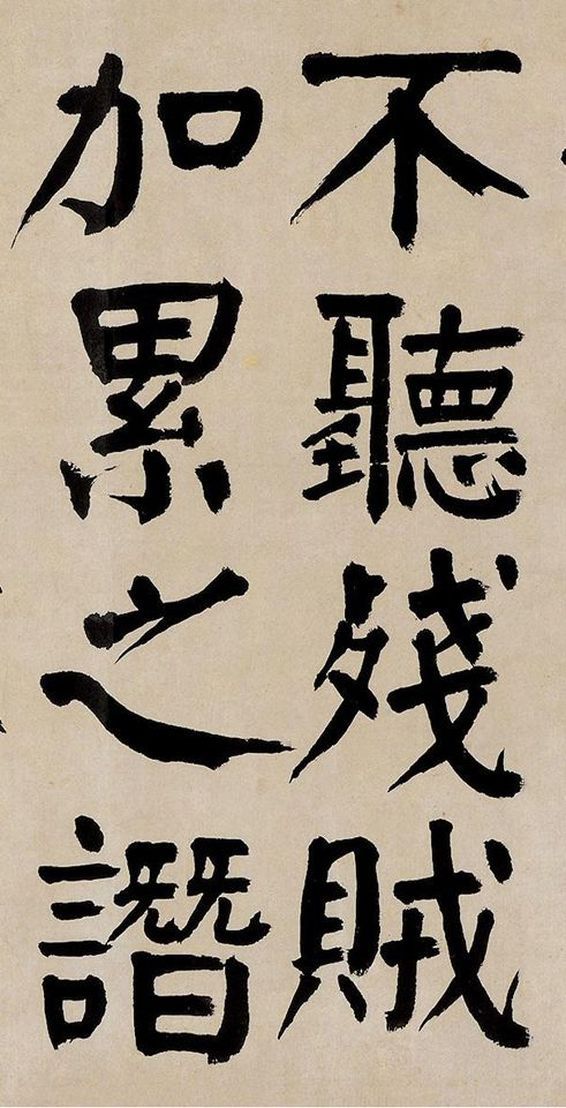 不聽殘賊
加累之譖